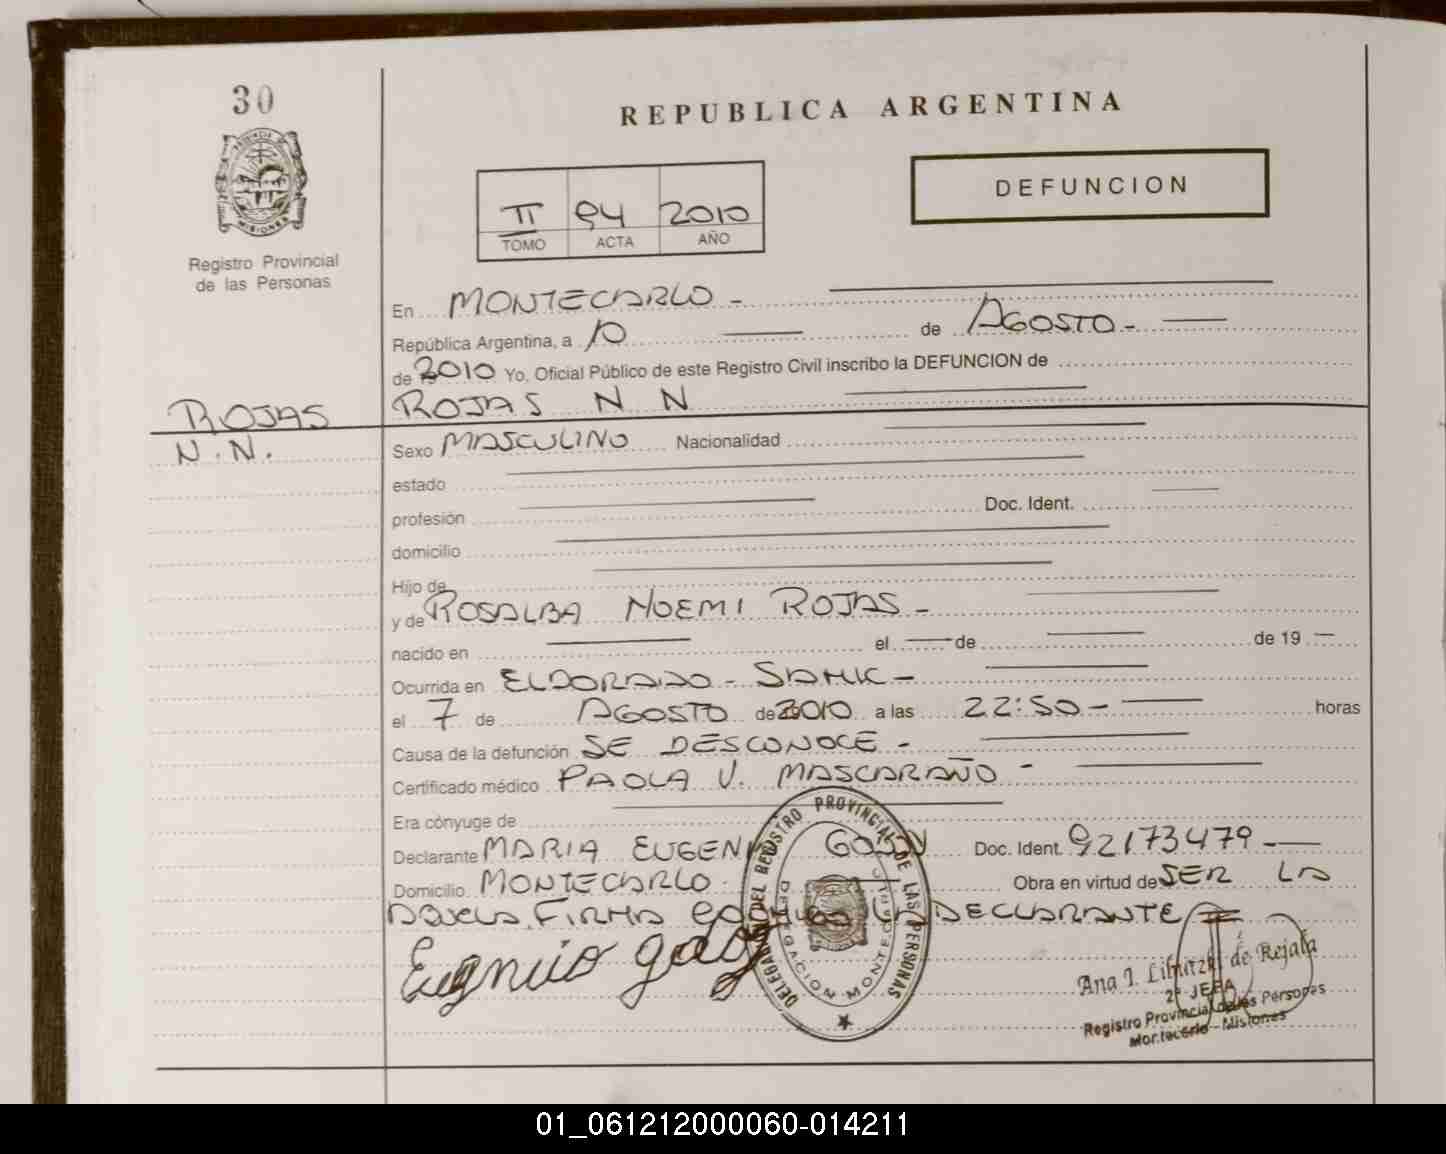 30
REPUBLICA ARGENTINA
PROVINCIA DE MISIONES
DEFUNCION
II 94 2010
TOMO ACTA AÑO
Registro Provincial
de las Personas
En MONTECARLO -
República Argentina, a 10 de AGOSTO -
de 2010 Yo, Oficial Público de este Registro Civil inscribo la DEFUNCION de
ROJAS ROJAS N N
N.N. Sexo MASCULINO Nacionalidad
estado
profesión Doc. Ident.
domicilio
Hijo de
y de ROSALBA NOEMI ROJAS -
nacido en el de de 19
Ocurrida en ELDORADO - SAMIC -
el 7 de AGOSTO de 2010 a las 22:50 - horas
Causa de la defunción SE DESCONOCE -
Certificado médico PAOLA V. MASCARAÑO -
Era cónyuge de
Declarante MARIA EUGENIA GODOY Doc. Ident. 92173479 -
Domicilio MONTECARLO Obra en virtud de SER LA
ABUELA. FIRMA CONMIGO LA DECLARANTE
Eugenia godoy
DELEGAC DEL REGISTRO PROVINCIAL DE LAS PERSONAS
DELEGACION MONTECARLO
Ana I. de Rejala
2ª JEFA
Registro Provincial de las Personas
Montecarlo - Misiones
01_061212000060-014211